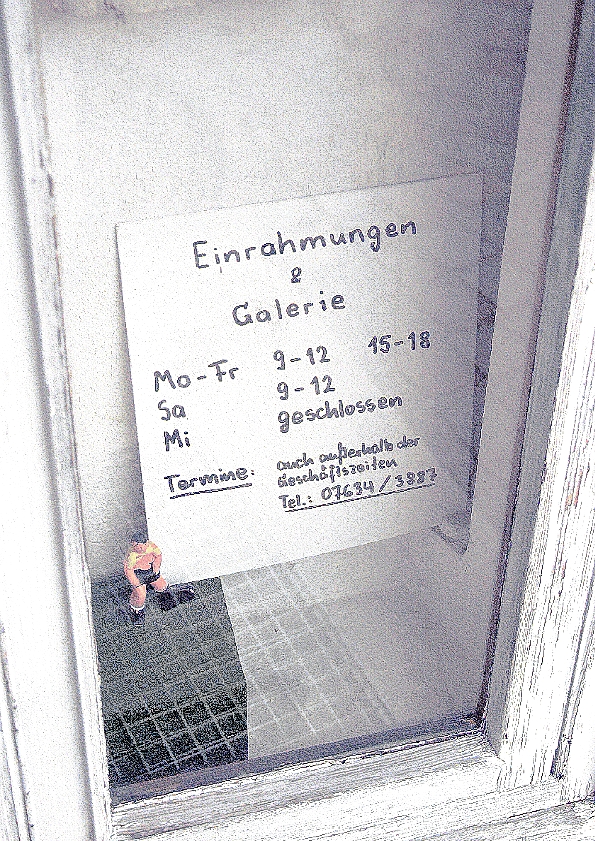 Einrahmungen
&
Galerie
Mo-Fr 9-12 15-18
Sa 9-12
Mi geschlossen
Termine: auch außerhalb der
Geschäftszeiten
Tel.: 07634 / 3887